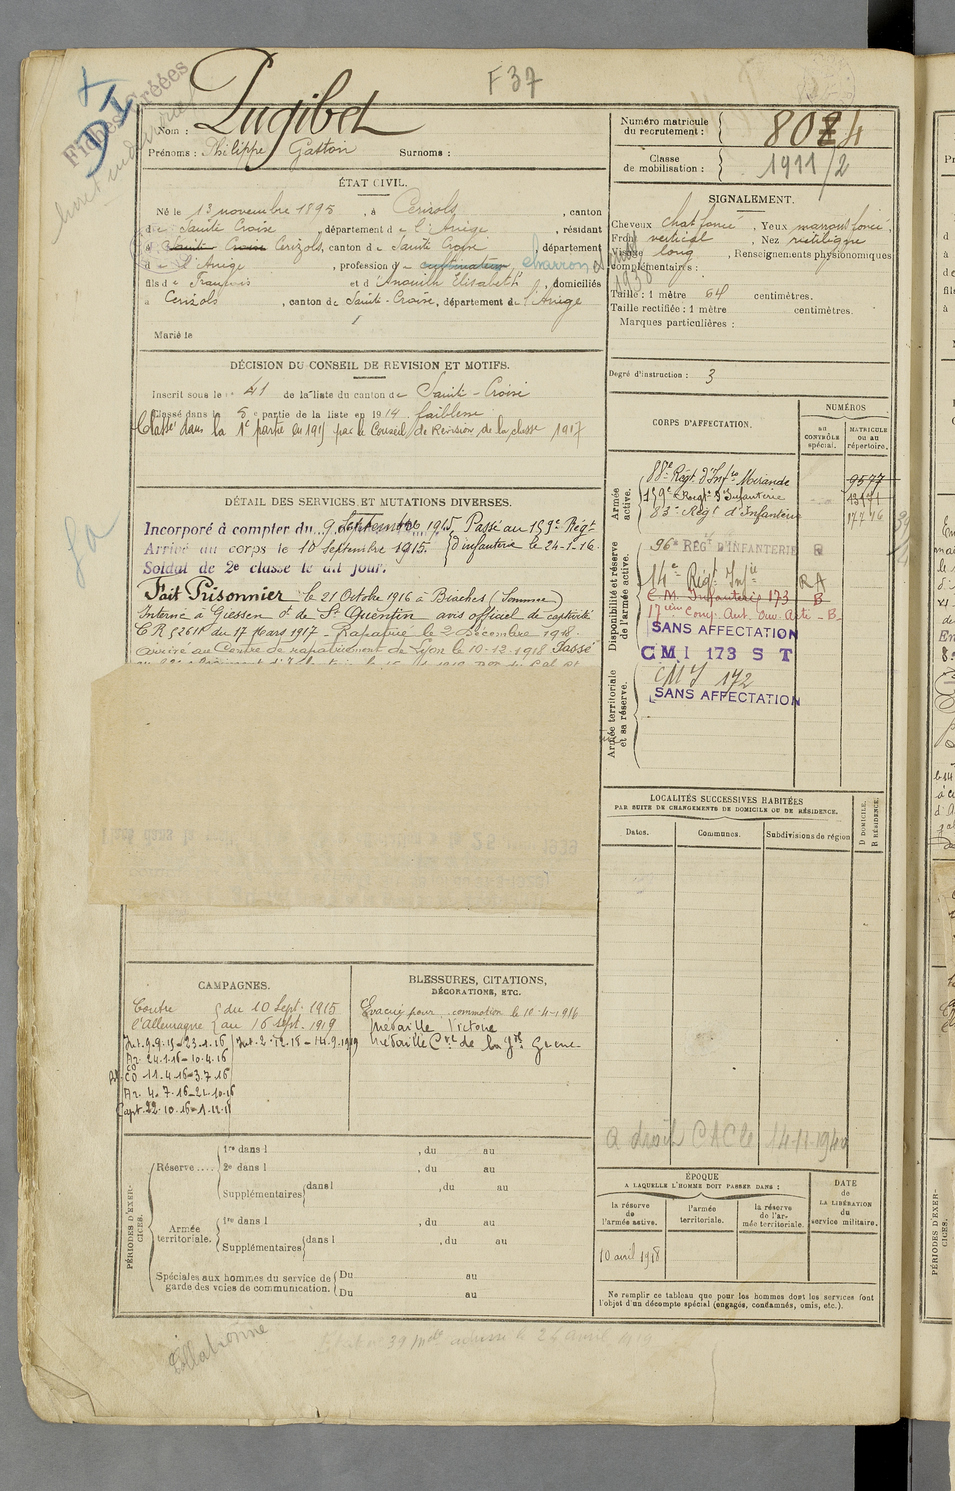 F 37
Fiches créées
Nom : Pugibet
Prénoms : Philippe Gaston Surnoms :
Numéro matricule du recrutement : 8024
Classe de mobilisation : 1911/2
ÉTAT CIVIL.
Né le 13 novembre 1895, à Cerizols, canton
de Sainte Croix, département de l'Ariège, résidant
à Sainte Croix Cerizols, canton de Sainte Croix, département
de l'Ariège, profession de cultivateur charron
fils de François et d'Anouilh Elisabeth, domiciliés
à Cerizols, canton de Sainte-Croix, département de l'Ariège
Marié le
SIGNALEMENT.
Cheveux chat foncé, Yeux marron foncé,
Front vertical, Nez rectiligne
Visage long, Renseignements physionomiques
complémentaires :
Taille : 1 mètre 64 centimètres.
Taille rectifiée : 1 mètre centimètres.
Marques particulières :
Degré d'instruction : 3
DÉCISION DU CONSEIL DE REVISION ET MOTIFS.
Inscrit sous le n° 41 de la liste du canton de Sainte-Croix
Classé dans la 5e partie de la liste en 1914 faiblesse
Classé dans la 1e partie en 1915 par le Conseil de Revision de la classe 1917
CORPS D'AFFECTATION.
NUMÉROS
au CONTRÔLE spécial.
MATRICULE ou au répertoire.
Armée active.
88e Regt. d'Infie Mirande 9577
159e Regt d'Infanterie
83e Regt d'Infanterie
Disponibilité et réserve de l'armée active.
96e RÉGT D'INFANTERIE R
14e Régt Infie RA
C.M. Infanterie 173 B
SANS AFFECTATION
CMI 173 S T
Armée territoriale et sa réserve.
CMI 172
SANS AFFECTATION
DÉTAIL DES SERVICES ET MUTATIONS DIVERSES.
Incorporé à compter du 9 Septembre 1915 Passé au 159e Régt
Arrivé au corps le 10 Septembre 1915. d'infanterie le 24-1-16
Soldat de 2e classe le dit jour.
Fait Prisonnier le 21 Octobre 1916 à Biaches (Somme)
Interné à Giessen dt de St Quentin avis officiel de captivité
CR 52611 du 17 Mars 1917 - Rapatrié le 2 Décembre 1918.
arrivé au Centre de rapatriement de Lyon le 10-12-1918 Passé
LOCALITÉS SUCCESSIVES HABITÉES
PAR SUITE DE CHANGEMENTS DE DOMICILE OU DE RÉSIDENCE.
Dates. Communes. Subdivisions de région
D DOMICILE.
R RÉSIDENCE.
a droit CACte 14-11-1940
CAMPAGNES.
Contre l'Allemagne
du 10 Sept. 1915
au 16 sept. 1919
Int. 9.9.15 = 23.1.16 Int. 2.12.18 - 14.9.1919
Ar. 24.1.16 = 10.4.16
CO 11.4.16 = 3.7.16
Ar. 4.7.16 - 21.10.16
Capt. 22.10.16 = 1.12.18
BLESSURES, CITATIONS,
DÉCORATIONS, ETC.
Evacué pour commotion le 10-4-1916
Médaille Victoire
Médaille Cve de la gde Guerre
PÉRIODES D'EXERCICES.
Réserve....
1re dans l , du au
2e dans l , du au
Supplémentaires dans l , du au
Armée territoriale.
1re dans l , du au
Supplémentaires dans l , du au
Spéciales aux hommes du service de garde des voies de communication.
Du au
Du au
ÉPOQUE
A LAQUELLE L'HOMME DOIT PASSER DANS :
la réserve de l'armée active.
l'armée territoriale.
la réserve de l'armée territoriale.
DATE de LA LIBÉRATION du service militaire.
10 avril 1918
Ne remplir ce tableau que pour les hommes dont les services font
l'objet d'un décompte spécial (engagés, condamnés, omis, etc.).